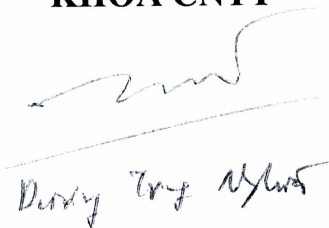 KHOA CNTT
Dương Trọng Nghĩa